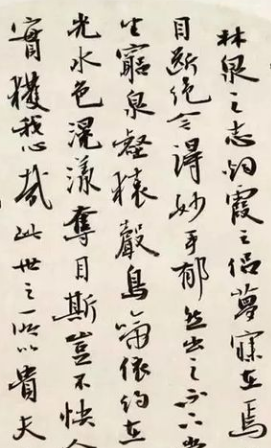 林泉之志烟霞之侣夢寐在焉
目断绝今得妙手郁然出之不下堂
坐窮泉壑猿聲鳥啼依約在
光水色滉漾奪目斯豈不快人
實獲我心哉此世之所以貴夫